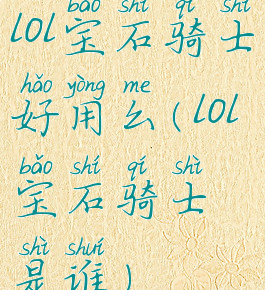 bǎo shí qí shì
lol宝石骑士
hǎo yòng me
好用么(lol
bǎo shí qí shì
宝石骑士
shì shuí
是谁)